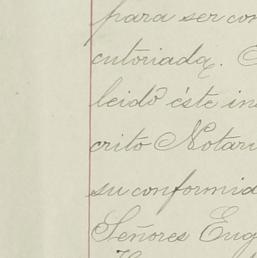 para ser con
cutoriada.
leido éste in
crito Notari
su conformid
Señores Eug